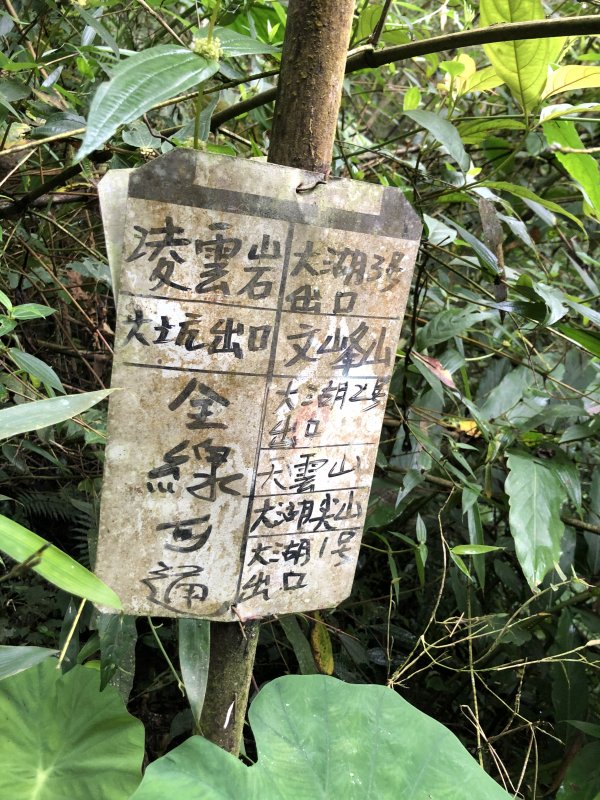 凌雲岩
大坑出口
全
線
可
通
大湖3号
出口
文峰山
大湖2号
出口
大雲山
大湖尖山
大湖1号
出口